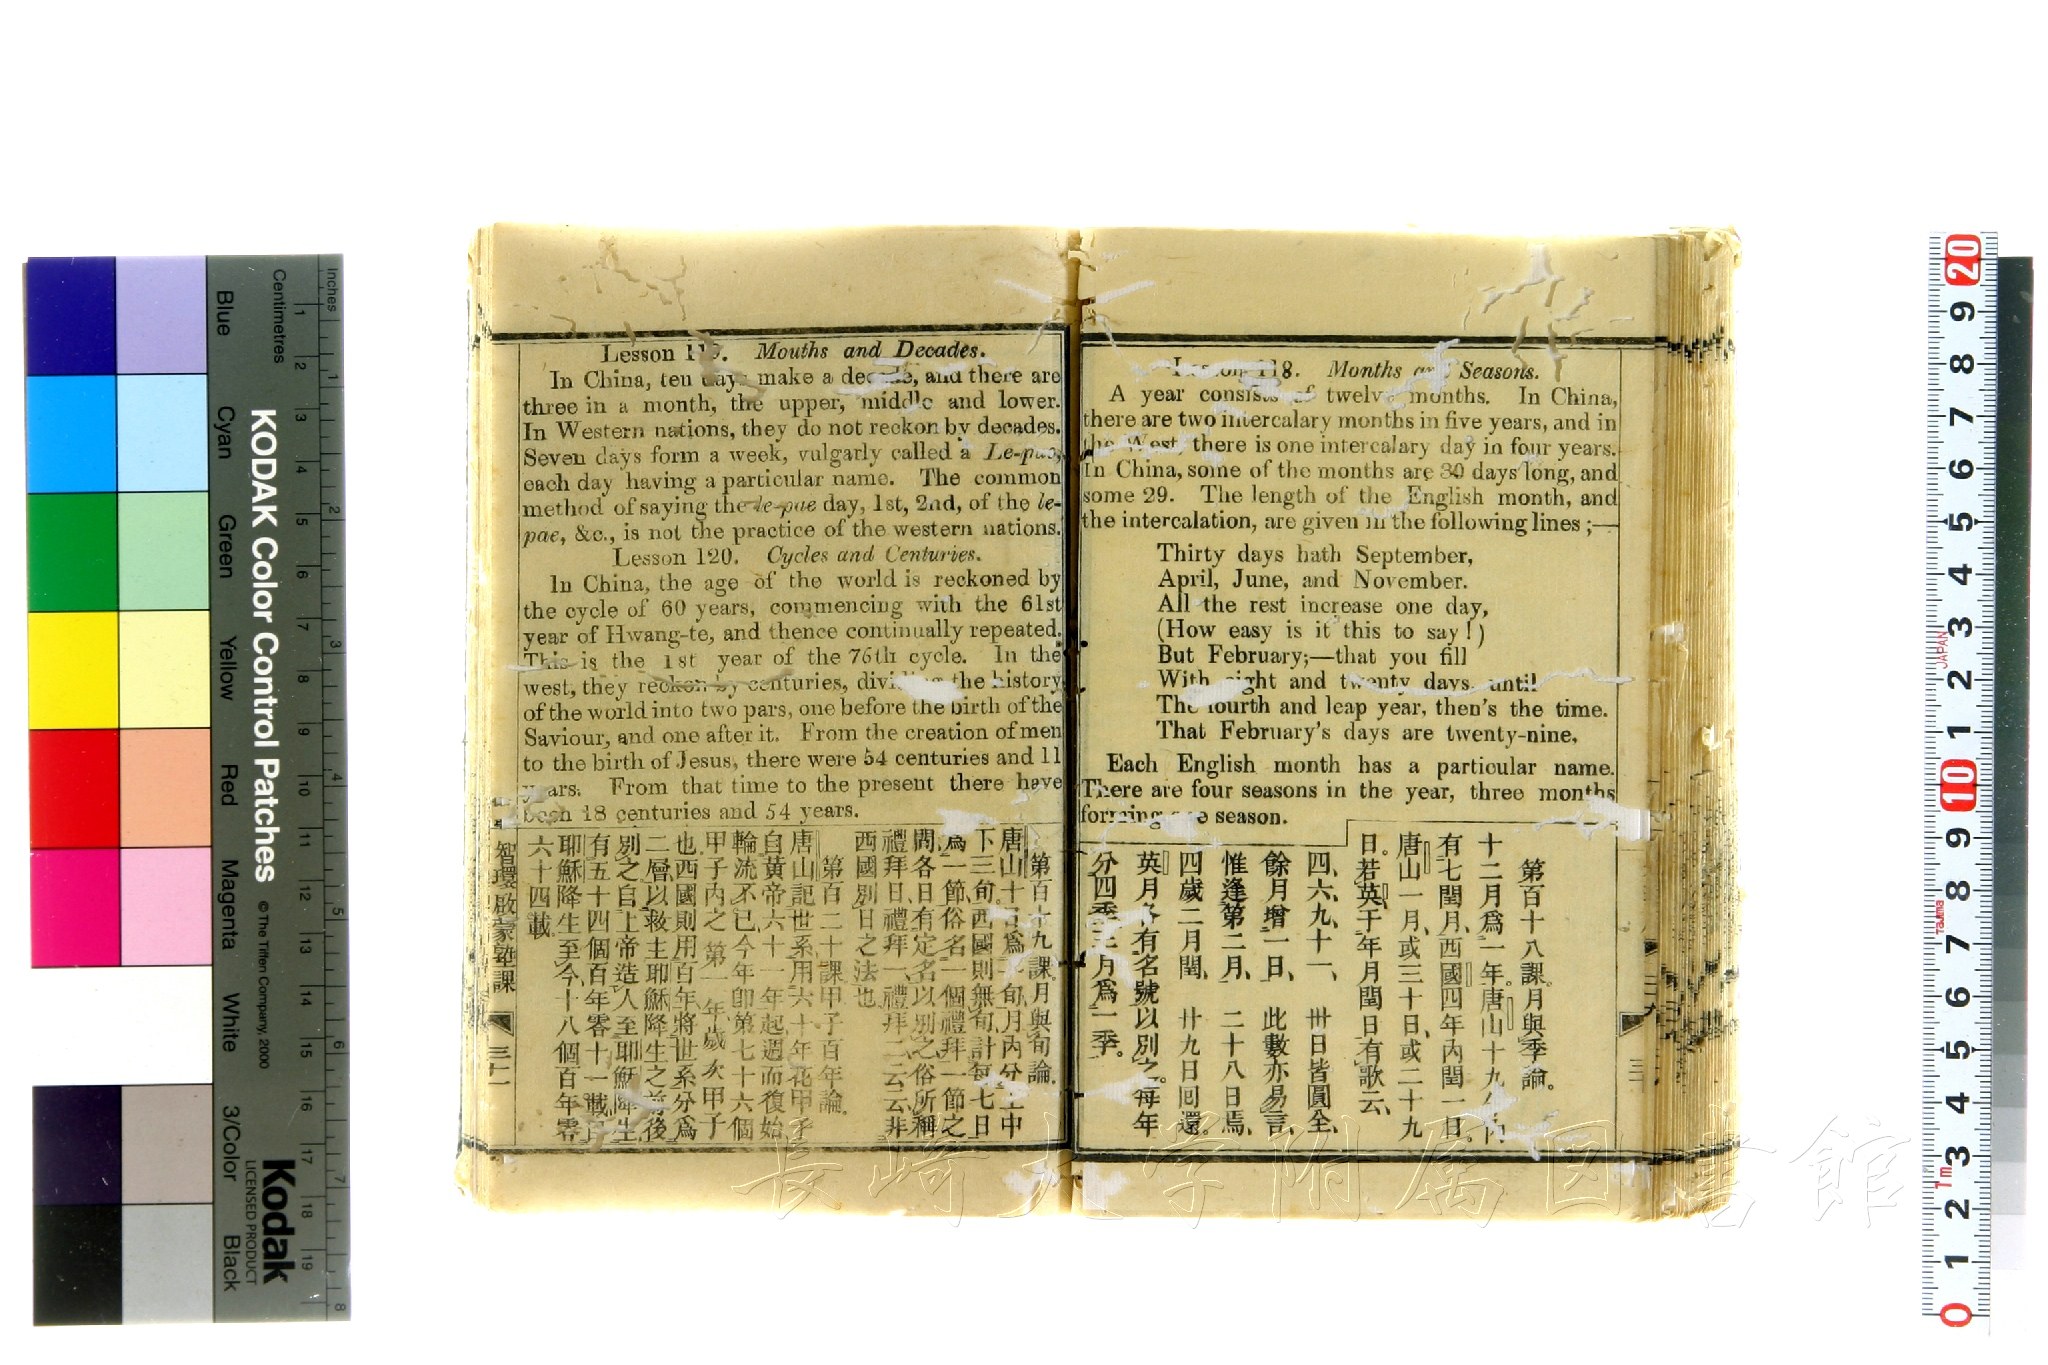 Lesson 118. Months and Seasons.
A year consists of twelve months. In China,
there are two intercalary months in five years, and in
the West, there is one intercalary day in four years.
In China, some of the months are 30 days long, and
some 29. The length of the English month, and
the intercalation, are given in the following lines ;—
Thirty days hath September,
April, June, and November.
All the rest increase one day,
(How easy is it this to say!)
But February;—that you fill
With eight and twenty days, until
The fourth and leap year, then's the time.
That February's days are twenty-nine.
Each English month has a particular name.
There are four seasons in the year, three months
forming one season.
第百十八課。月與季論。
十二月爲一年。唐山十九年內
有七閏月、西國四年內閏一日。
唐山一月、或三十日、或二十九
日。若英于年月閏日有歌云、
四、六、九、十一、 卅日皆圓全、
餘月增一日、 此數亦易言、
惟逢第二月、 二十八日焉、
四歲二月閏、 廿九日回還。
英月各有名號以別之。每年
分四季三月爲一季。
Lesson 119. Mouths and Decades.
In China, ten days make a decade, and there are
three in a month, the upper, middle and lower.
In Western nations, they do not reckon by decades.
Seven days form a week, vulgarly called a Le-pae,
each day having a particular name. The common
method of saying the le-pae day, 1st, 2nd, of the le-
pae, &c., is not the practice of the western nations.
Lesson 120. Cycles and Centuries.
In China, the age of the world is reckoned by
the cycle of 60 years, commencing with the 61st
year of Hwang-te, and thence continually repeated.
This is the 1st year of the 76th cycle. In the
west, they reckon by centuries, dividing the history
of the world into two pars, one before the birth of the
Saviour, and one after it. From the creation of men
to the birth of Jesus, there were 54 centuries and 11
years. From that time to the present there have
been 18 centuries and 54 years.
第百十九課。月與旬論。
唐山十日爲一旬、月內分上中
下三旬。西國則無旬、計每七日
爲一節、俗名一個禮拜、一節之
間、各日有定名以別之。俗所稱
禮拜日、禮拜一、禮拜二云云、非
西國別日之法也
第百二十課。甲子百年論。
唐山記世系、用六十年花甲子
自黃帝六十一年起、週而復始
輪流不已、今年卽第七十六個
甲子內之第一年、歲次甲子
也。西國則用百年、將世系分爲
二層、以救主耶穌降生之前後
別之、自上帝造人至耶穌降生
有五十四個百年零十一載、自
耶穌降生至今、十八個百年零
六十四載。
智環啟蒙塾課
三十一
KODAK Color Control Patches
© The Tiffen Company, 2000
Kodak
LICENSED PRODUCT
Inches
Centimetres
Blue
Cyan
Green
Yellow
Red
Magenta
White
3/Color
Black
1 2 3 4 5 6 7 8 9 10 11 12 13 14 15 16 17 18 19
1 2 3 4 5 6 7 8
20 9 8 7 6 5 4 3 2 1 10 9 8 7 6 5 4 3 2 1 0
JAPAN
Tajima
1m
長崎大学附属図書館